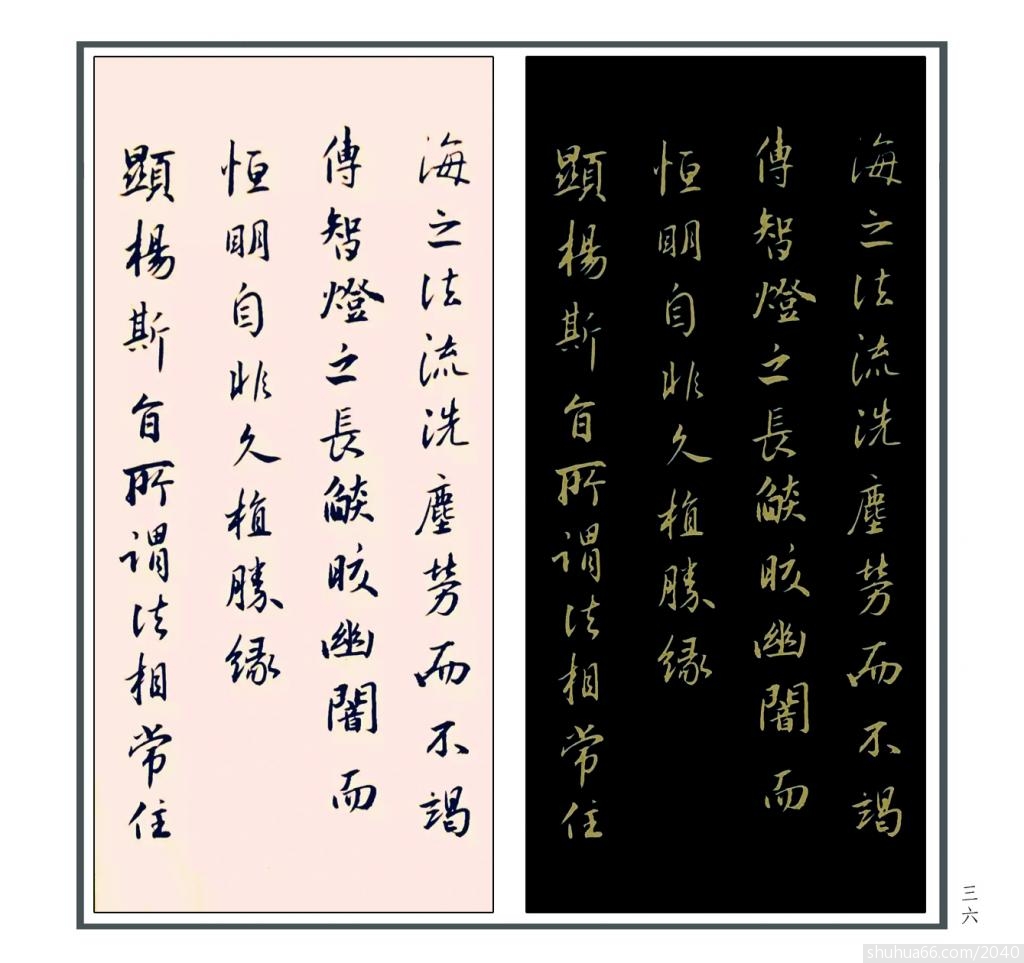 海之法流洗塵勞而不竭
傳智燈之長燄皎幽闇而
恒明自非久植勝緣
顯楊斯旨所謂法相常住
海之法流洗塵勞而不竭
傳智燈之長燄皎幽闇而
恒明自非久植勝緣
顯楊斯旨所謂法相常住
三六
shuhua66.com/2040